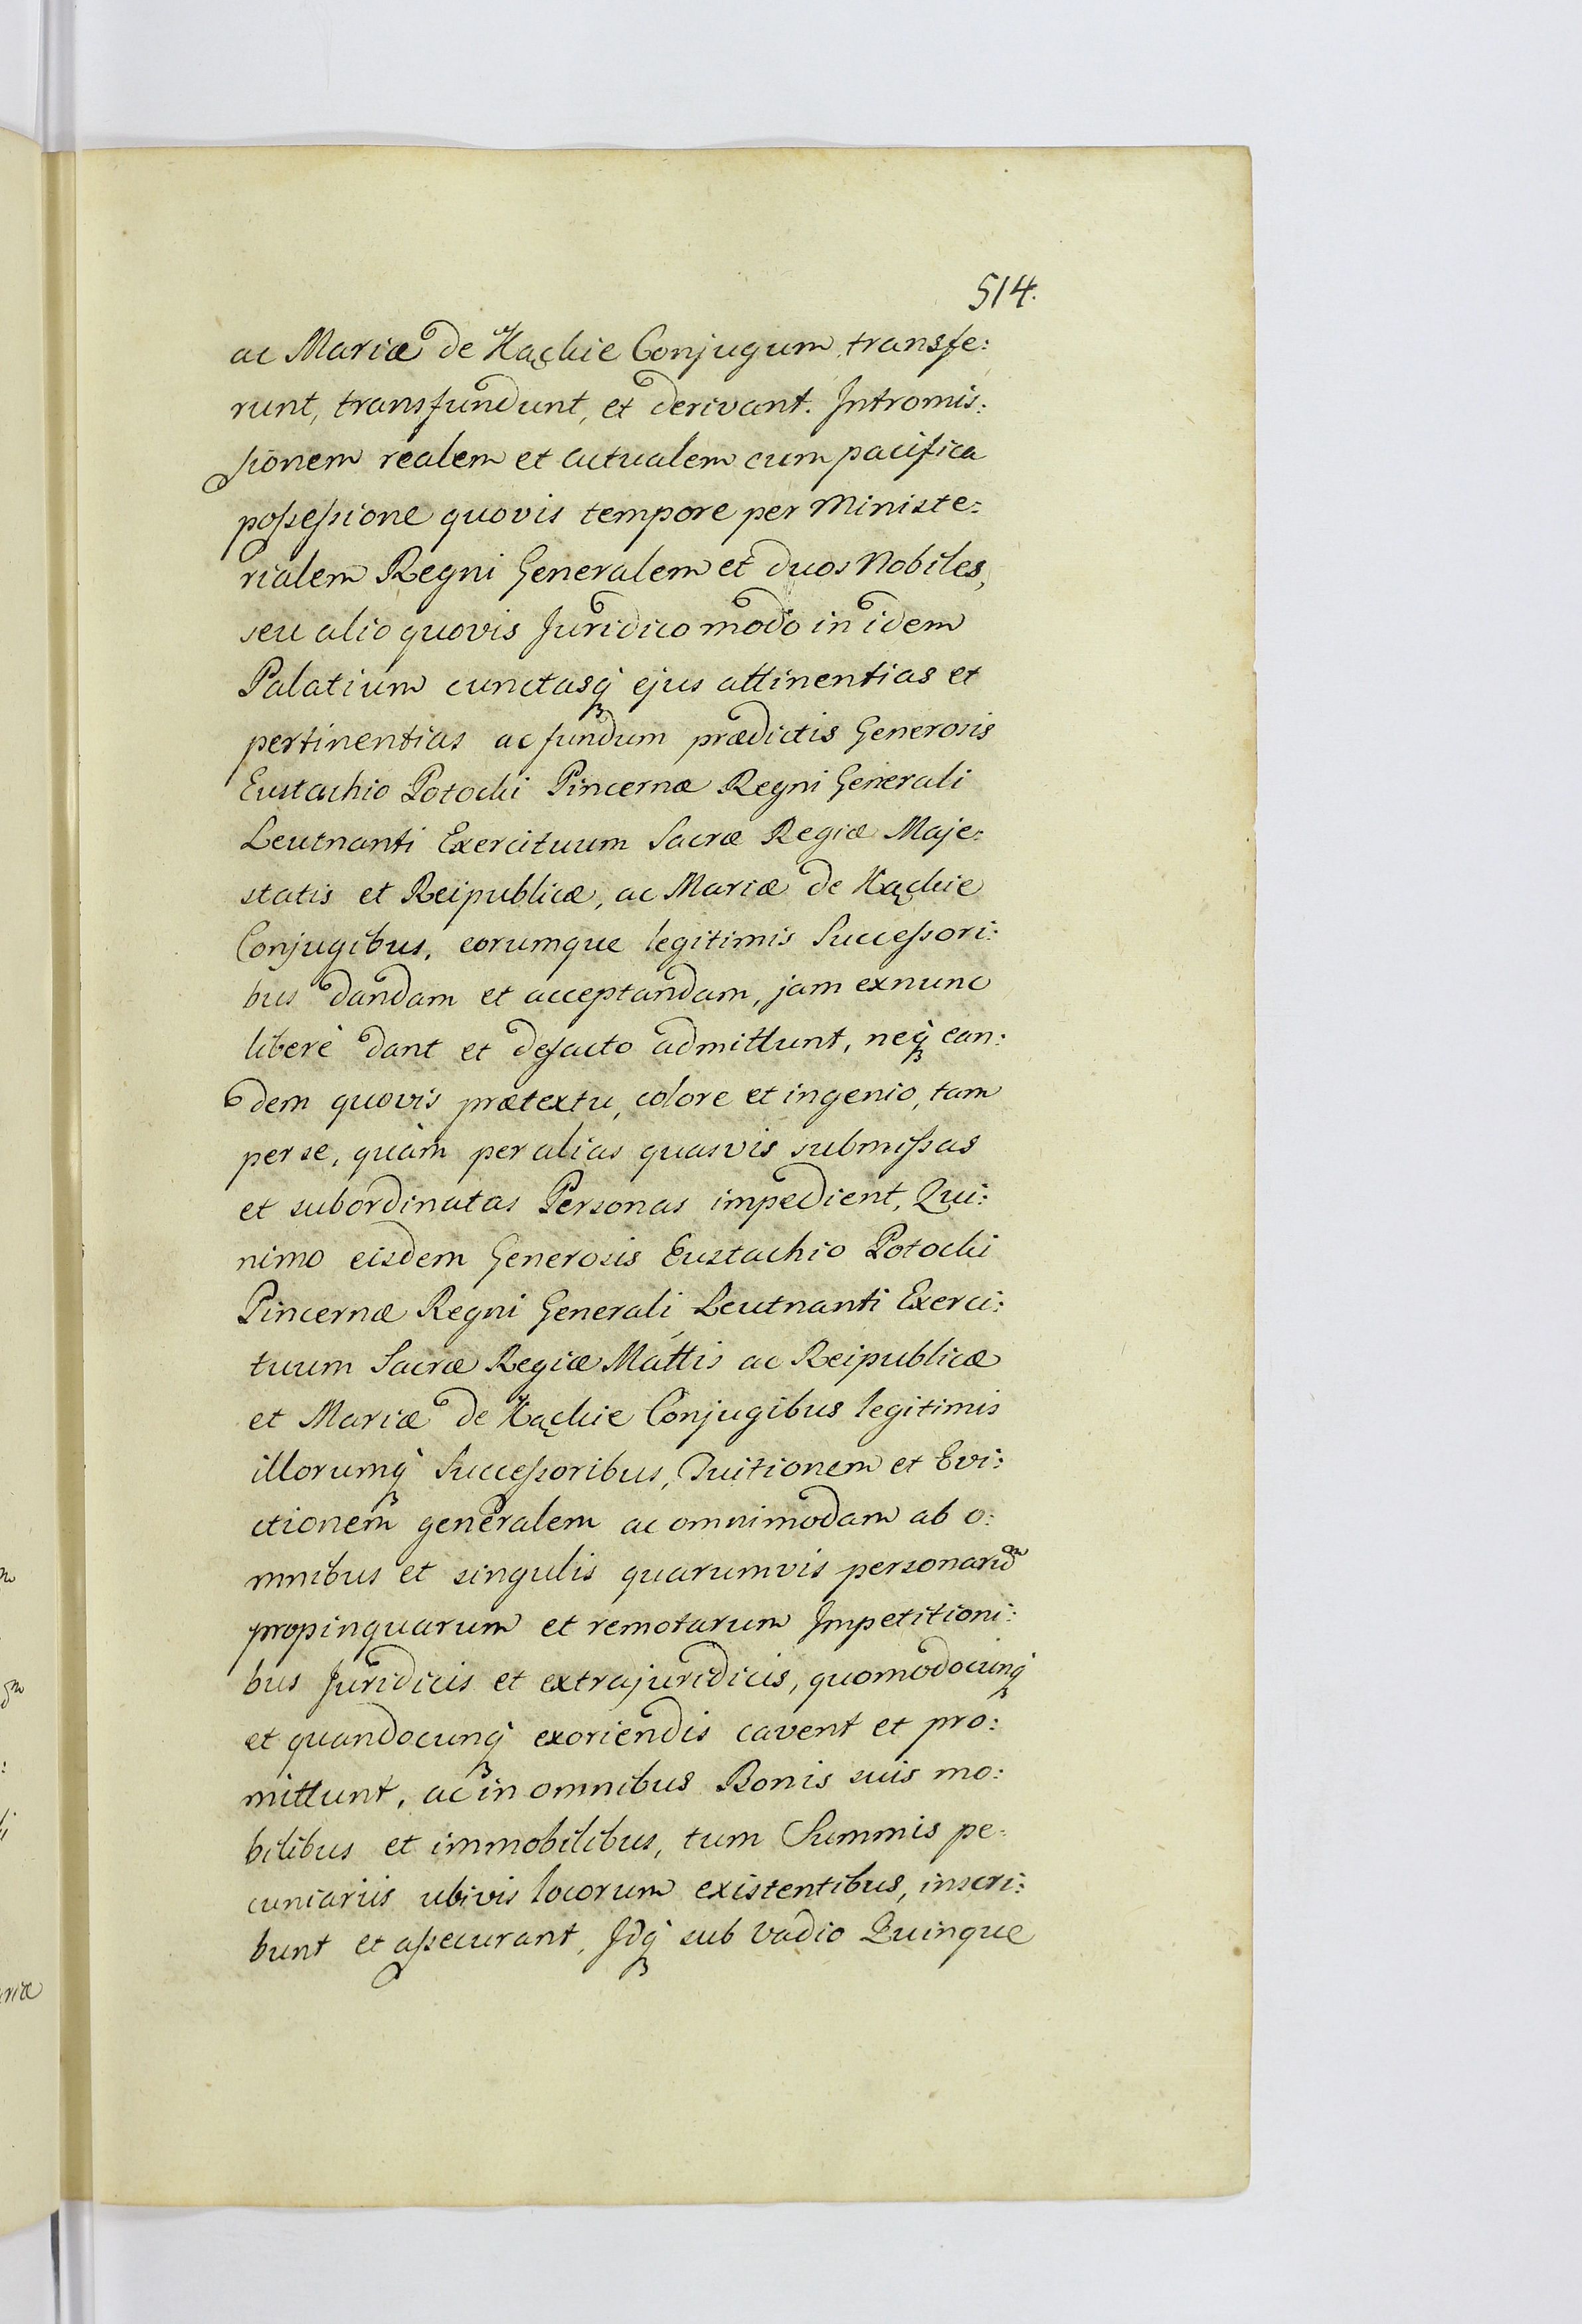 514.
ac Mariæ de Kąckie Conjugum, transfe:
runt, transfundunt, et derivant. Intromis:
sionem realem et actualem cum pacifica
possessione quovis tempore per Ministe:
rialem Regni Generalem et duos Nobiles,
seu alio quovis Juridico modo in idem
Palatium cunctasq́ ejus attinentias et
pertinentias ac fundum prædictis Generosis
Eustachio Potocki Pincernæ Regni Generali
Leutnanti Exercituum Sacræ Regiæ Maje:
statis et Reipublicæ, ac Mariæ de Kąckie
Conjugibus, eorumque legitimis Successori:
bus dandam et acceptandam, jam exnunc
liberè dant et defacto admittunt, neq́ ean:
dem quovis prætextu, colore et ingenio, tam
per se, quàm per alias quasvis submissas
et subordinatas Personas impedient, Qui:
nimo eisdem Generosis Eustachio Potocki
Pincernæ Regni Generali Leutnanti Exerci:
tuum Sacræ Regiæ Mattis ac Reipublicæ
et Mariæ de Kąckie Conjugibus legitimis
illorumq́ Successoribus, Tuitionem et Evi:
ctionem generalem ac omnimodam ab o:
mnibus et singulis quarumvis personarũ
propinquarum et remotarum Impetitioni:
bus Juridicis et extrajuridicis, quomodocunq́
et quandocunq́ exoriendis cavent et pro:
mittunt, ac in omnibus Bonis suis mo:
bilibus et immobilibus, tum Summis pe:
cuniariis ubivis locorum existentibus, inscri:
bunt et assecurant, Idq́ sub vadio Quinque